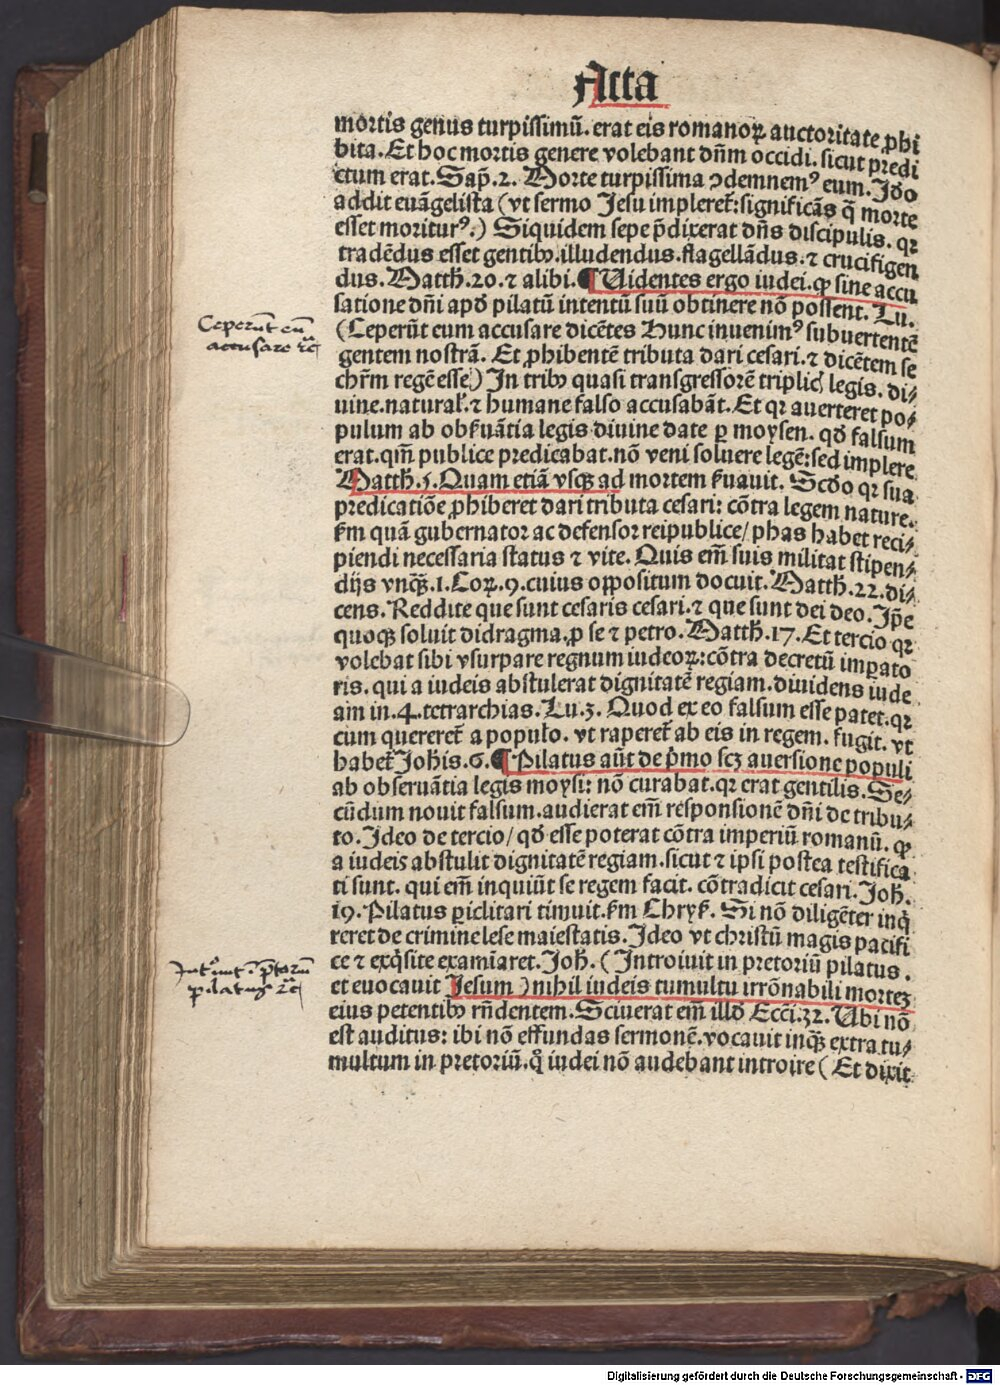 Acta
mortis genus turpissimũ. erat eis romanoꝝ auctoritate ꝓhi
bita. Et hoc mortis genere volebant dñm occidi. sicut predi
ctum erat. Sap̃. 2. Morte turpissima ꝯdemnemꝰ eum. Jdo
addit euãgelista (vt sermo Jesu implereť: significãs q̃ morte
esset moriturꝰ.) Siquidem sepe p̃dixerat dñs discipulis. qꝛ
tradẽdus esset gentibꝰ. illudendus. flagellãdus. ⁊ crucifigen
dus. Matth. 20. ⁊ alibi. ¶ Uidentes ergo iudei. ꝙ sine accu
satione dñi apđ pilatũ intentũ suũ obtinere nõ possent. Lu.
(Ceperũt eum accusare dicẽtes Hunc inuenimꝰ subuertentẽ
gentem nostrã. Et ꝓhibentẽ tributa dari cesari. ⁊ dicẽtem se
chr̃m regẽ esse) In tribꝰ quasi transgressorẽ triplicꝭ legis. di⸗
uine. naturaƚ. ⁊ humane falso accusabãt. Et qꝛ auerteret po⸗
pulum ab obẜuãtia legis diuine date ꝑ moysen. qđ falsum
erat. qm̃ publice predicabat. nõ veni soluere legẽ: sed implere
Matth. 5. Quam etiã vsqꝫ ad mortem ẜuauit. Scđo qꝛ sua
predicatiõe ꝓhiberet dari tributa cesari: cõtra legem nature.
ẜm quã gubernator ac defensor reipublice/ phas habet reci⸗
piendi necessaria status ⁊ vite. Quis em̃ suis militat stipen⸗
dijs vnqꝫ. 1. Coꝝ. 9. cuius oppositum docuit. Matth. 22. di⸗
cens. Reddite que sunt cesaris cesari. ⁊ que sunt dei deo. Jp̃e
quoqꝫ soluit didragma. ꝓ se ⁊ petro. Matth. 17. Et tercio qꝛ
volebat sibi vsurpare regnum iudeoꝝ: cõtra decretũ imꝑato
ris. qui a iudeis abstulerat dignitatẽ regiam. diuidens iude
am in. 4. tetrarchias. Lu. 3. Quod ex eo falsum esse patet. qꝛ
cum querereť a populo. vt rapereť ab eis in regem. fugit. vt
habeť Johis. 6. ¶ Pilatus aũt de p̃mo scꝫ auersione populi
ab obseruãtia legis moysi: nõ curabat. qꝛ erat gentilis. Se⸗
cũdum nouit falsum. audierat em̃ responsionẽ dñi de tribu⸗
to. Jdeo de tercio/ qđ esse poterat cõtra imperiũ romanũ. ꝙ
a iudeis abstulit dignitatẽ regiam. sicut ⁊ ipsi postea testifica
ti sunt. qui em̃ inquiũt se regem facit. cõtradicit cesari. Joh.
19. Pilatus ꝑiclitari timuit. ẜm Chryẜ. Si nõ diligẽter inq̃
reret de crimine lese maiestatis. Jdeo vt christũ magis pacifi
ce ⁊ exq̃site examĩaret. Joh. (Introiuit in pretoriũ pilatus.
et euocauit Jesum) nihil iudeis tumultu irrõnabili mortẽ
eius petentibꝰ rñdentem. Sciuerat em̃ illđ Ecci. 32. Ubi nõ
est auditus: ibi nõ effundas sermonẽ. vocauit inqꝫ extra tu⸗
multum in pretoriũ. q̊ iudei nõ audebant introire (Et dixit
Ceperũt eũ
accusare ꝛc̃
pilatus ꝛc̃
Digitalisierung gefördert durch die Deutsche Forschungsgemeinschaft - DFG